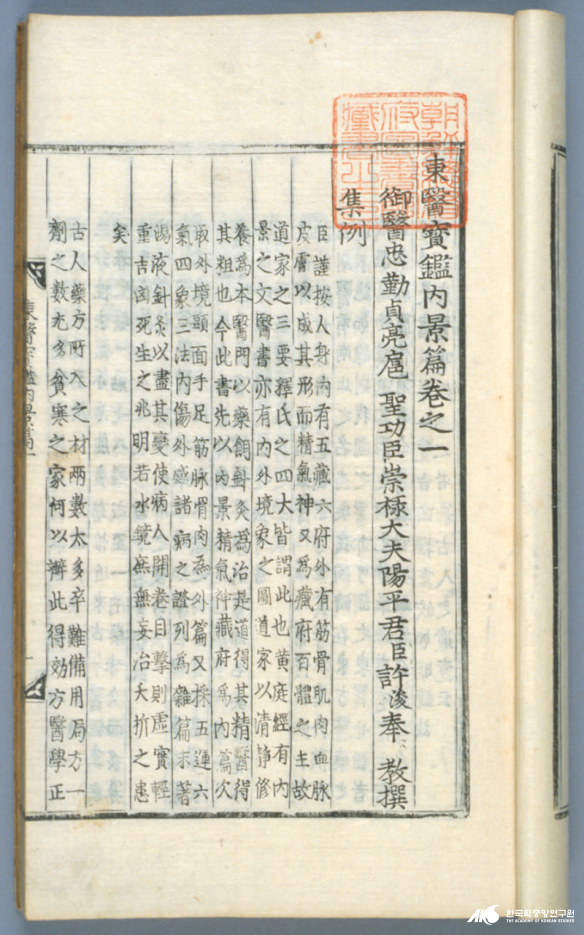 朝鮮總督
府圖書館
藏書之印
東醫寶鑑內景篇卷之一
御醫忠勤貞亮扈 聖功臣崇祿大夫陽平君臣許浚奉 教撰
集例
臣謹按人身內有五臟六府外有筋骨肌肉血脉
皮膚以成其形而精氣神又爲臟府百體之主故
道家之三要釋氏之四大皆謂此也黃庭經有內
景之文醫書亦有內外境象之圖道家以清靜修
養爲本醫門以藥餌針灸爲治是道得其精醫得
其粗也今此書先以內景精氣神臟府爲內篇次
取外境頭面手足筋脉骨肉爲外篇又採五運六
氣四象三法內傷外感諸病之證列爲雜篇末著
湯液針灸以盡其變使病人開卷目擊則虛實輕
重吉凶死生之兆明若水鏡庶無妄治夭折之患
矣
古人藥方所入之材兩數太多卒難備用局方一
劑之數尤多貧寒之家何以辦此得効方醫學正
東醫寶鑑內景篇一
한국학중앙연구원
THE ACADEMY OF KOREAN STUDIES